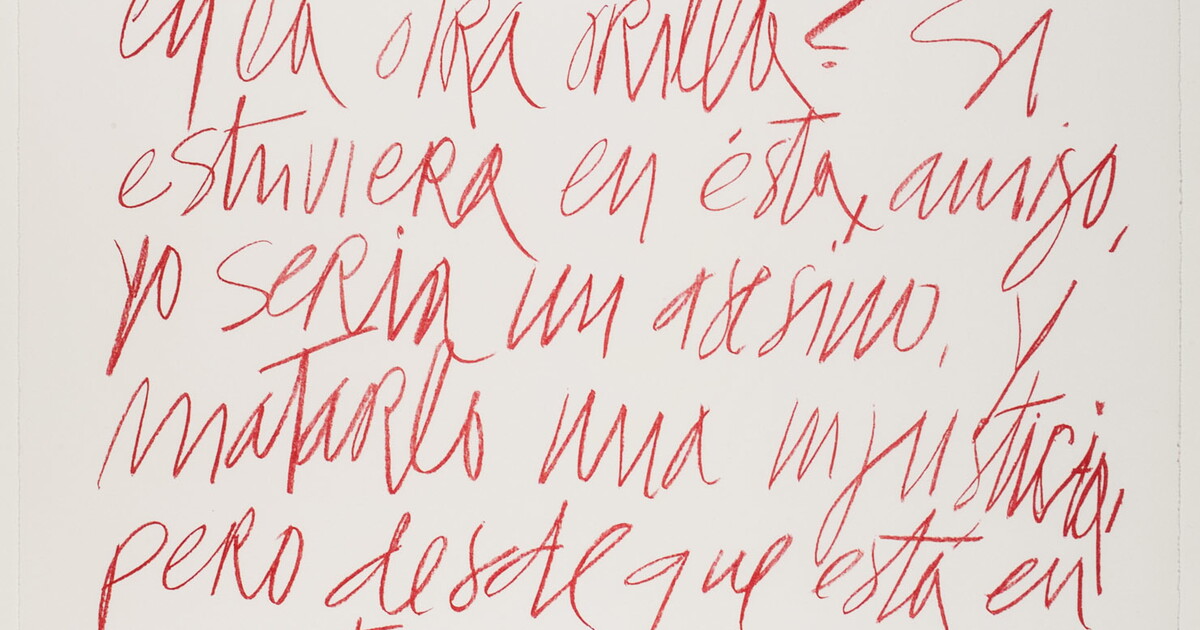 en la otra orilla? Si
estuviera en ésta, amigo,
yo seria un asesino, y
matarlo una injusticia,
pero desde que está en